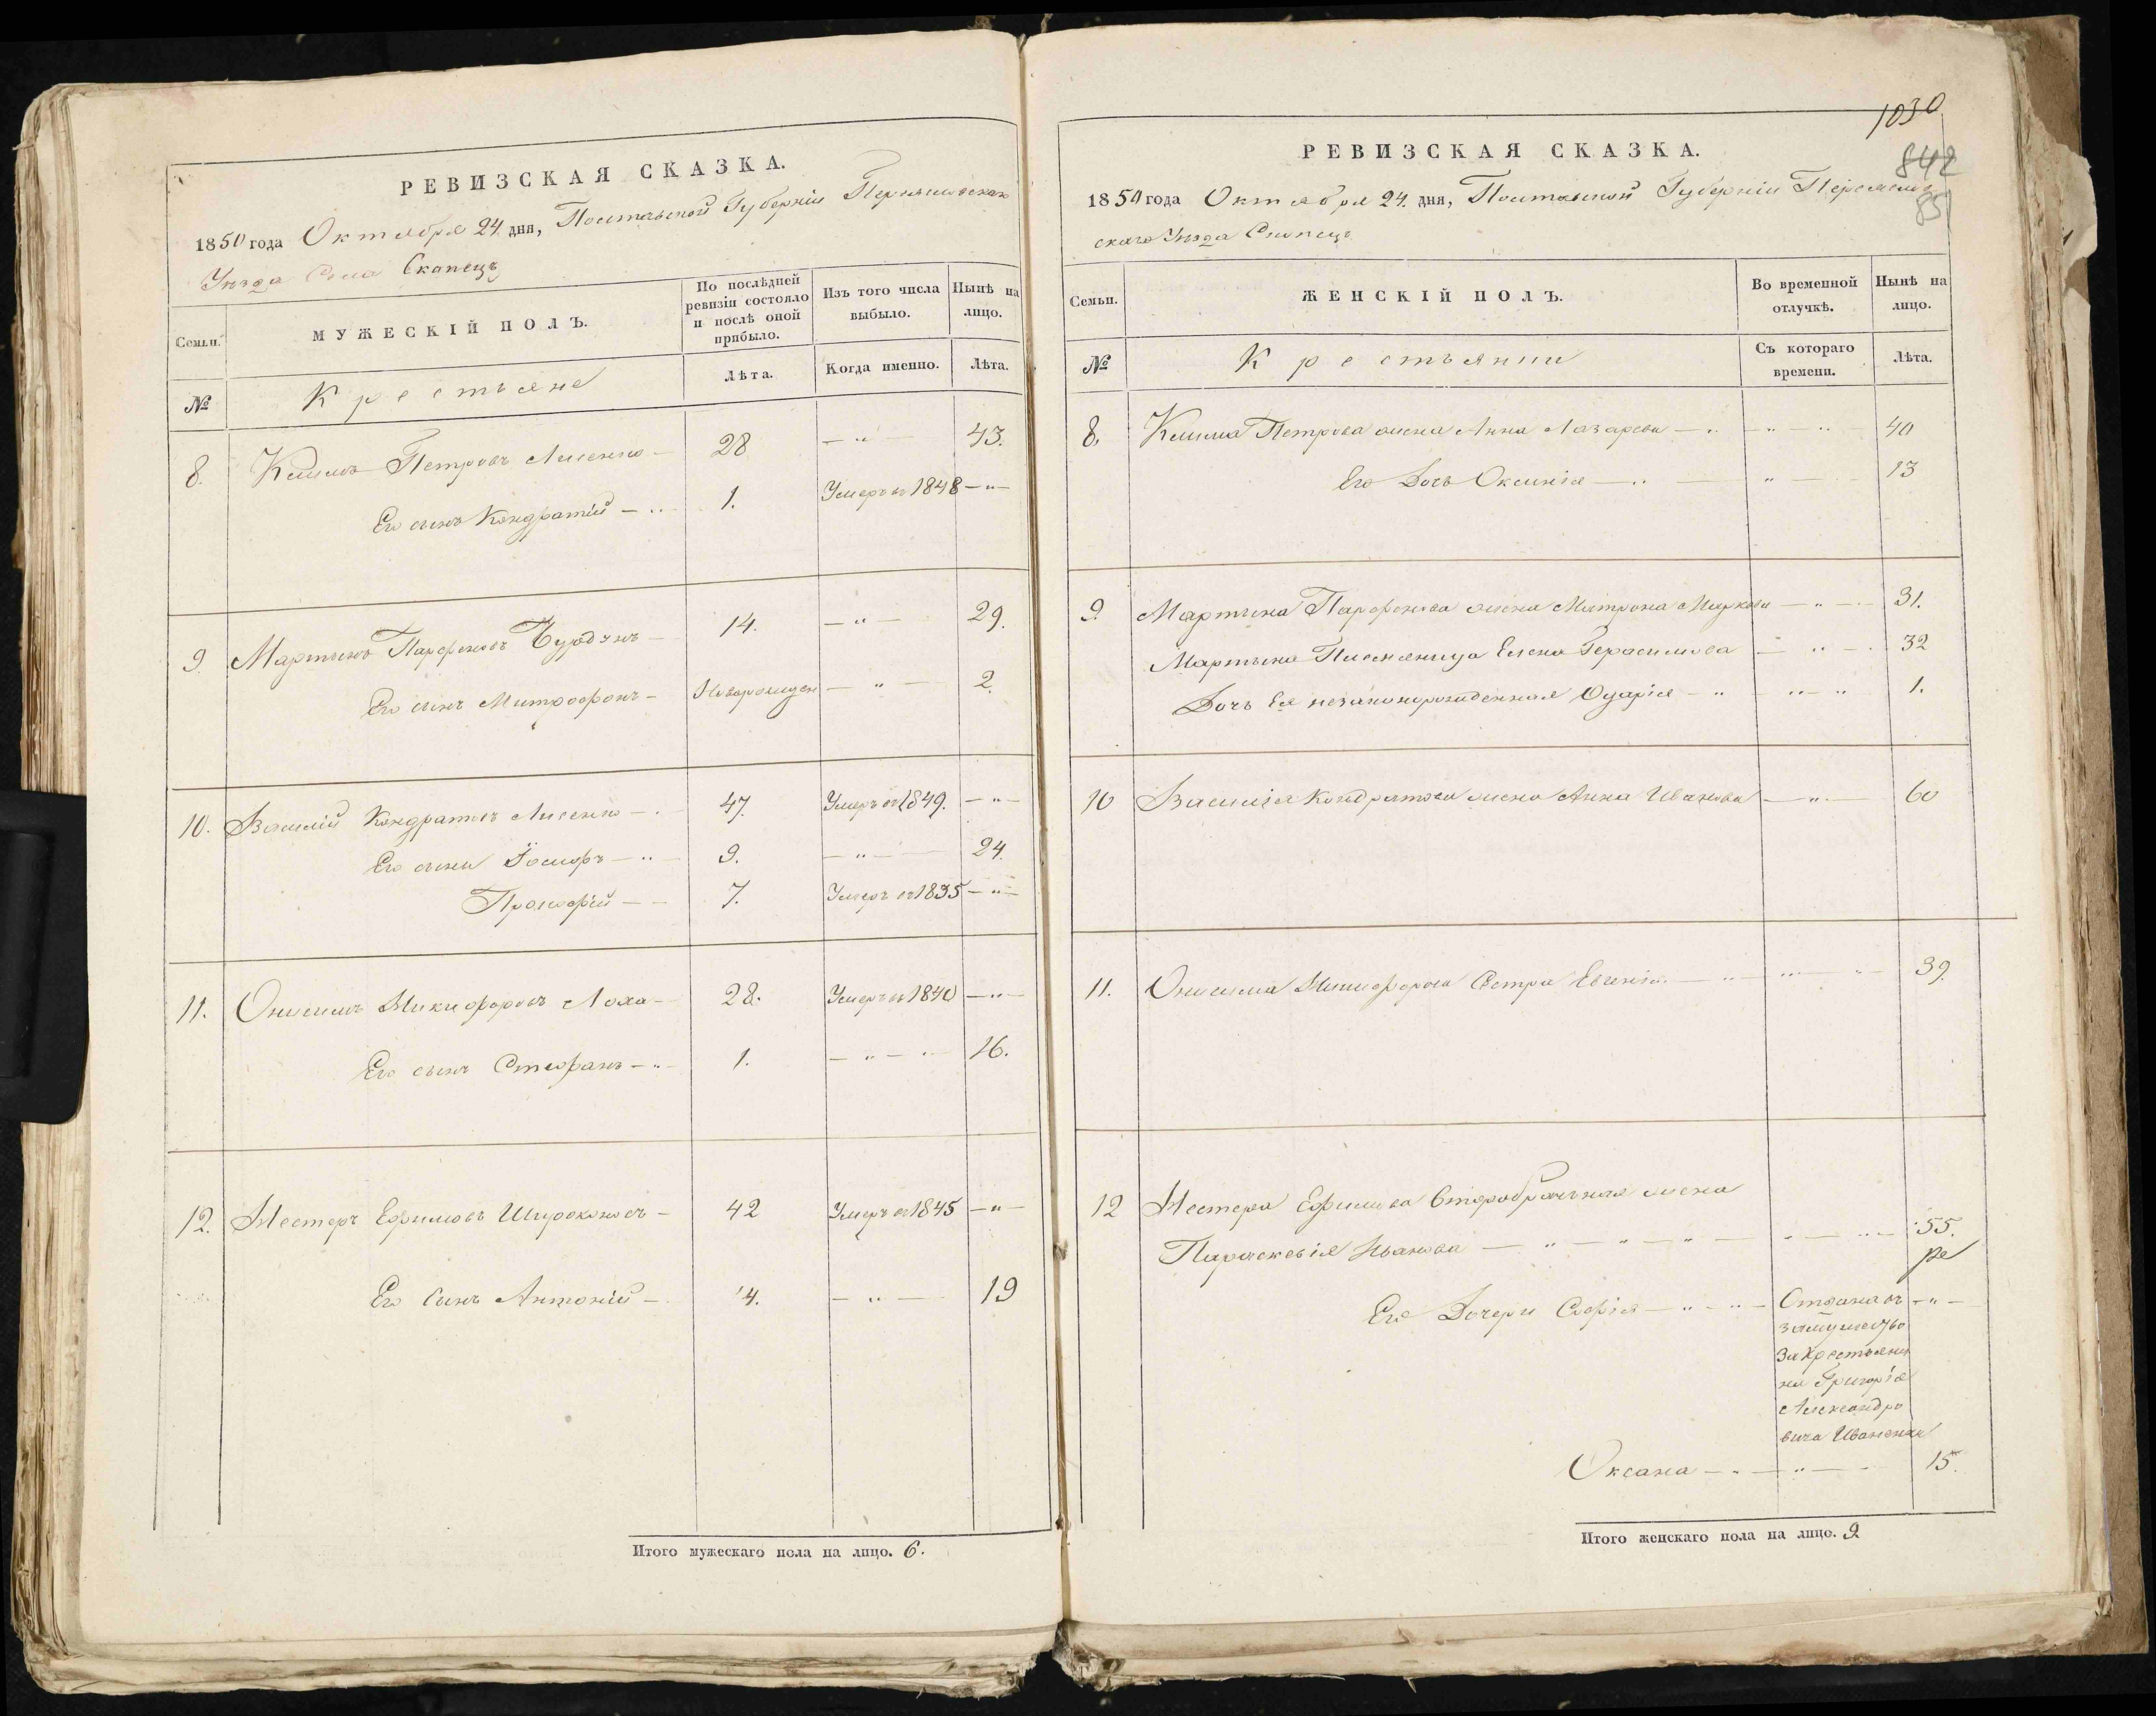 РЕВИЗСКАЯ СКАЗКА.
1850 года Октября 24 дня, Полтавской Губерніи Переяславскаго
Уѣзда Села Скопецъ
Семьи. МУЖЕСКІЙ ПОЛЪ. По послѣдней ревизіи состояло и послѣ оной прибыло. Изъ того числа выбыло. Нынѣ на лицо.
№ Крестьяне Лѣта. Когда именно. Лѣта.
8. Климъ Петровъ Лисенко — 28 — " 43.
Его сынъ Кондратій — " 1. Умеръ въ 1848 — " —
9. Мартынъ Парфеновъ — 14. — " — 29.
Его сынъ Митрофанъ — Новорожден — " — 2.
10. Василій Кондратовъ Лисенко — 47. Умеръ въ 1849. — " —
Его сыны Іосифъ — " 9. — " — 24.
Прокофій — — 7. Умеръ въ 1835 — " —
11. Онисимъ Никифоровъ Лоха — 28. Умеръ въ 1840 — " —
Его сынъ Стефанъ — " — 1. — " — " 16.
12. Нестеръ Ефимовъ Широконосъ — 42 Умеръ въ 1845 — " —
Его Сынъ Антоній — 4. — " — 19
Итого мужескаго пола на лицо. 6.
1030
842
85
РЕВИЗСКАЯ СКАЗКА.
1850 года Октября 24. дня, Полтавской Губерніи Переяслав
скаго Уѣзда Скопецъ
Семьи. ЖЕНСКІЙ ПОЛЪ. Во временной отлучкѣ. Нынѣ на лицо.
№ Крестьянки Съ котораго времени. Лѣта.
8. Клима Петрова жена Анна Лазарева — " — " — " 40
Его Дочь Оксинія — " — " — 13
9. Мартына Парфенова жена Матрона Маркова — " — 31.
Мартына Племяница Елена Герасимова — " — 32
Дочь Ея незаконорожденная Одарія — " — " " 1.
10 Василія Кондратова жена Анна Иванова — " — 60
11. Онисима Никифорова Сестра Евгенія — " — " — 39.
12 Нестера Ефимова Второбрачная жена
Параскевія Иванова — " — " — " — " — " — 55.
Его Дочери Софія — " — " — Отдана въ — " —
замужество
за крестьяни
на Григорія
Александро
вича Иваненка
Оксана — " — " — 15.
Итого женскаго пола на лицо. 9